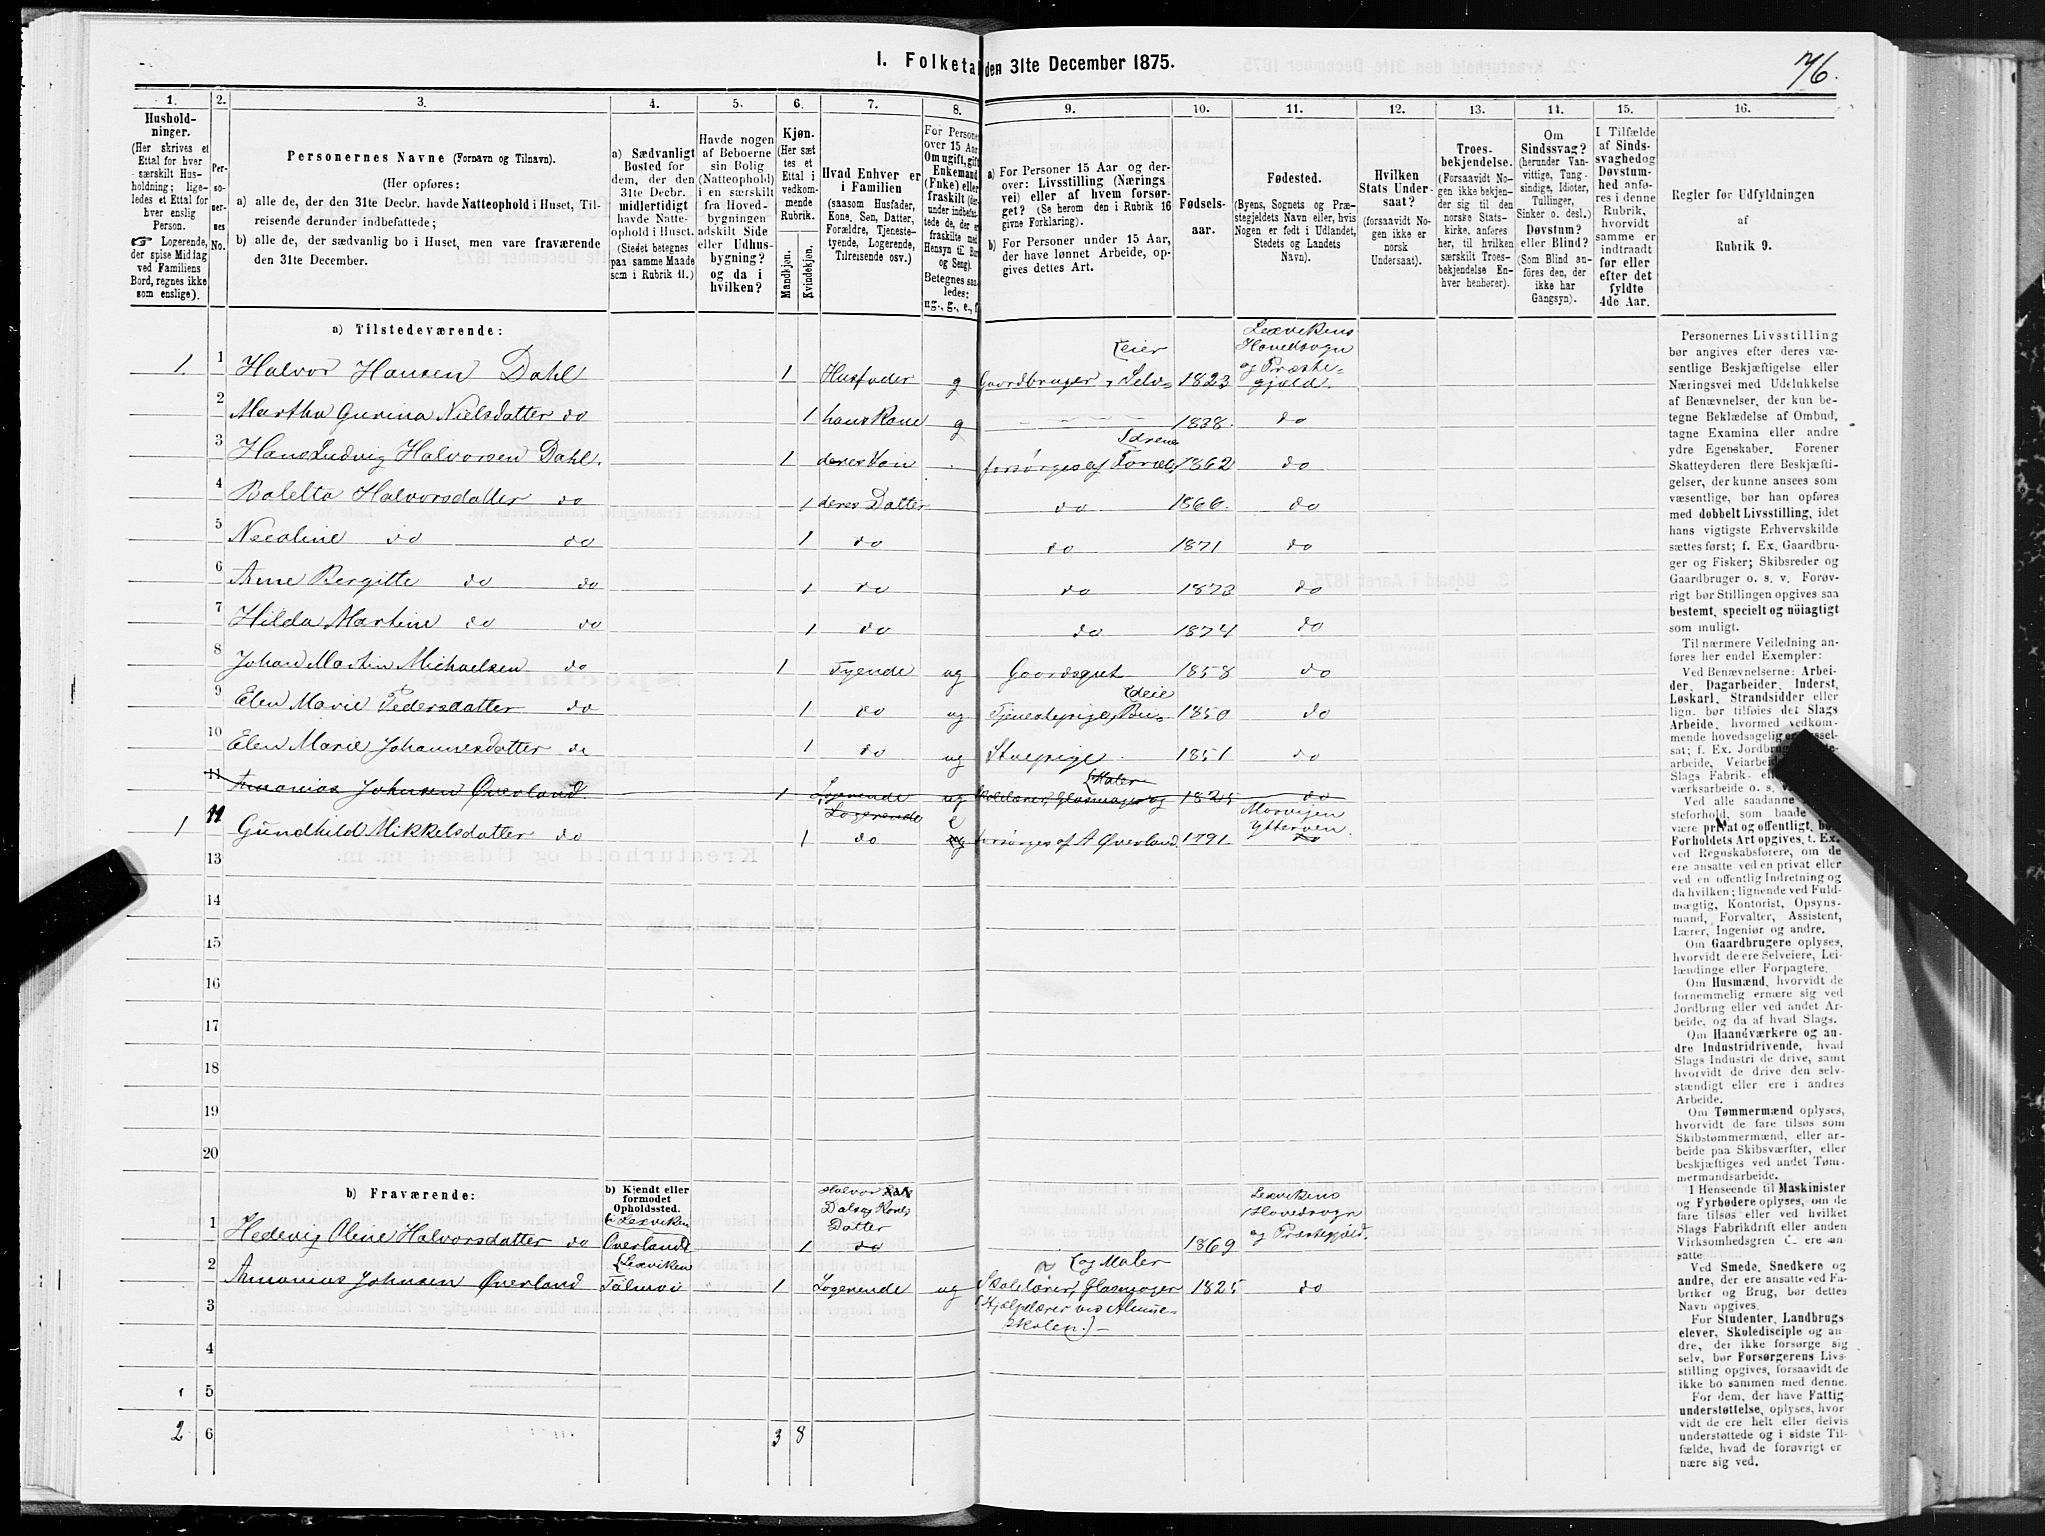 I. Folketal den 31te December 1875.
76.
1. 2. 3. 4. 5. 6. 7. 8. 9. 10. 11. 12. 13. 14. 15. 16.
Husholdninger.
(Her skrives et
Ettal for hver
særskilt Husholdning;
ligeledes
et Ettal for
hver enslig
Person.
☞ Logerende,
der spise Middag
ved Familiens
Bord, regnes ikke
som enslige).
Personernes
No.
Personernes Navne (Fornavn og Tilnavn).
(Her opføres:
a) alle de, der den 31te Decbr. havde Natteophold i Huset, Tilreisende
derunder indbefattede;
b) alle de, der sædvanlig bo i Huset, men vare fraværende
den 31te December.
a) Sædvanligt
Bosted for
dem, der den
31te Decbr.
midlertidigt
havde Natteophold
i Huset.
(Stedet betegnes
paa samme Maade
som i Rubrik 11.)
Havde nogen
af Beboerne
sin Bolig
(Natteophold)
i en særskilt
fra Hovedbygningen
adskilt Side
eller Udhusbygning?
og da i
hvilken?
Kjøn.
(Her sættes
et
Ettal i
vedkommende
Rubrik.
Mandkjøn.
Kvindekjøn.
Hvad Enhver er
i Familien
(saasom Husfader,
Kone, Søn, Datter,
Forældre, Tjenestetyende,
Logerende,
Tilreisende osv.)
For Personer
over 15 Aar:
Om ugift, gift
Enkemand
(Enke) eller
fraskilt
Betegnes saaledes:
ug., g., e., f.
a) For Personer 15 Aar og derover:
Livsstilling (Næringsvei)
eller af hvem forsørget?
(Se herom den i Rubrik 16
givne Forklaring).
b) For Personer under 15 Aar,
der have lønnet Arbeide, opgives
dettes Art.
Fødselsaar.
Fødested.
(Byens, Sognets og Præstegjeldets
Navn eller, hvis
Nogen er født i Udlandet,
Stedets og Landets
Navn).
Hvilken
Stats Undersaat?
(forsaavidt Nogen
ikke er
norsk
Undersaat).
Troesbekjendelse.
(Forsaavidt Nogen
ikke bekjender
sig til den
norske Statskirke,
anføres
her, til hvilken
særskilt Troesbekjendelse
Enhver
henhører).
Om
Sindssvag?
(herunder Vanvittige,
Tungsindige,
Idioter,
Tullinger,
Sinker o. desl.)
Døvstum?
eller Blind?
(Som Blind anføres
den, der
ikke har
Gangsyn).
I Tilfælde
af Sindssvaghed
og
Døvstumhed
anføres
i denne
Rubrik,
hvorvidt
samme er
indtraadt
før eller
efter det
fyldte
4de Aar.
Regler for Udfyldningen
af
Rubrik 9.
a) Tilstedeværende:
1. 1 Halvor Hansen Dahl 1 Husfader g Gaardbruger, Selveier 1823 Lexvikens Hovedsogn og Præstegjæld.
2 Martha Gurina Nielsdatter do 1 hans Kone g 1838. do
3 Hans Ludvig Halvorsen Dahl. 1 deres Søn forsørges af Forældrene 1862 do
4 Boletta Halvorsdatter do 1 deres Datter do 1866. do
5 Nicoline do do 1 do do 1871 do
6 Anne Bergitte do do 1 do do 1873 do
7 Hilda Martine do do 1 do do 1874 do
8 Johan Martin Michaelsen do 1 Tyende ug Gaardsgut 1858 do
9 Elen Marie Pedersdatter do 1 do ug Tjenestepige, Budeie 1850 do
10 Elen Marie Johannesdatter do 1 do ug Stuepige 1851 do
11 Ananias Johnsen Øverland. 1 Logerende ug Skolelærer, Glasmager og Maler 1825 do
1 11 Gundhild Mikkelsdatter do 1 Logerende do e ug forsørges af A Øverland. 1791. Morvijen Ytterøen. do
13
14
15
16
17
18
19
20
b) Fraværende:
b) Kjendt eller
formodet
Opholdssted.
1 Hedevig Oline Halvorsdatter do Lexviken Øverland 1 Halvor Dals og Kones Datter do 1869 Lexvikens Hovedsogn og Præstegjæld.
2 Ananias Johnsen Øverland Lexviken 1 Logerende ug Skolelærer, Glasmager og Maler (Hjælpelærer ved Almueskolen.) 1825 do
3
4
5
2 6 3 8
Personernes Livsstilling
bør angives efter deres væsentlige
Beskjæftigelse eller
Næringsvei med Udelukkelse
af Benævnelser, der kun betegne
Beklædelse af Ombud,
tagne Examina eller andre
ydre Egenskaber. Forener
Skatteyderen flere Beskjæftigelser,
der kunne ansees som
væsentlige, bør han opføres
med dobbelt Livsstilling, idet
hans vigtigste Erhvervskilde
sættes først; f. Ex. Gaardbruger
og Fisker; Skibsreder og
Gaardbruger o. s. v. Forøvrigt
bør Stillingen opgives saa
bestemt, specielt og nöiagtigt
som muligt.
Til nærmere Veiledning anføres
her endel Exempler:
Ved Benævnelserne: Arbeider,
Dagarbeider, Inderst,
Løskarl, Strandsidder eller
lign. bør tilføies det Slags
Arbeide, hvormed vedkommende
hovedsagelig er
Ved alle saadanne
privat og offentligt,
Forholdets Art opgives, t. Ex.
ved Regnskabsførere, om de
ere ansatte ved en privat eller
ved en offentlig Indretning og
da hvilken; lignende ved Fuldmægtig,
Kontorist, Opsynsmand,
Forvalter, Assistent,
Lærer, Ingeniør og andre.
Om Gaardbrugere oplyses,
hvorvidt de ere Selveiere, Leilændinge
eller Forpagtere.
Om Husmænd, hvorvidt de
fornemmelig ernære sig ved
Jordbrug eller ved andet Arbeide,
og da af hvad Slags.
Om Haandværkere og andre
Industridrivende, hvad
Slags Industri de drive, samt
hvorvidt de drive den selvstændigt
eller ere i andres
Arbeide.
Om Tømmermænd oplyses,
hvorvidt de fare tilsøs som
Skibstømmermænd, eller arbeide
paa Skibsværfter, eller
beskjæftiges ved andet Tømmermandsarbeide.
I Henseende til Maskinister
og Fyrbødere oplyses, om de
fare tilsøs eller ved hvilket
Slags Fabrikdrift eller anden
Virksomhedsgren de ere ansatte.
Ved Smede, Snedkere og
andre, der ere ansatte ved Fabriker
og Brug, bør dettes
Navn opgives.
For Studenter, Landbrugselever,
Skoledisciple og andre,
der ikke forsørge sig
selv, bør Forsørgerens Livsstilling
opgives, forsaavidt de
ikke bo sammen med denne.
For dem, der have Fattigunderstøttelse,
oplyses, hvorvidt
de ere helt eller delvis
understøttede og i sidste Tilfælde,
hvad de forøvrigt ernære
sig ved.